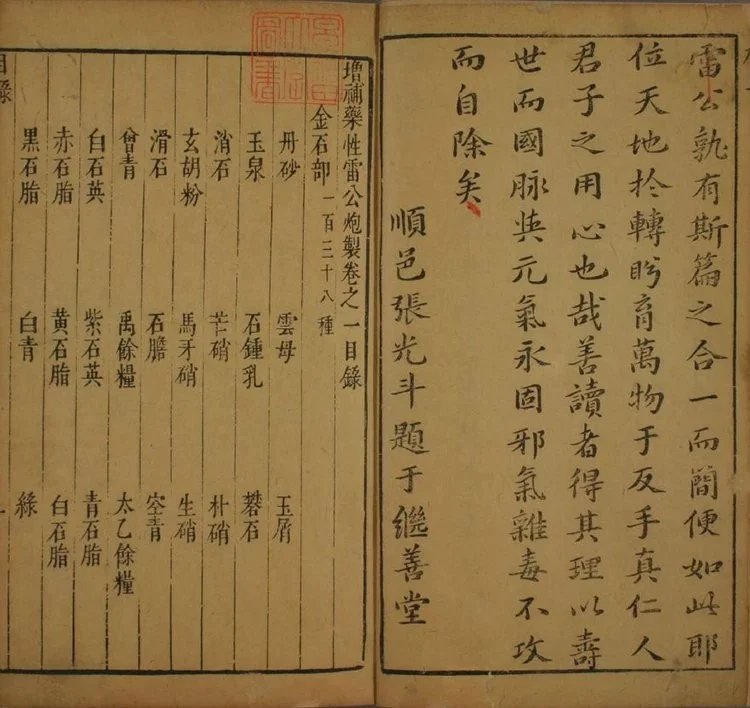 雷公孰有斯篇之合一而簡便如此耶
位天地於轉眄育萬物于反手真仁人
君子之用心也哉善讀者得其理以壽
世而國脉與元氣永固邪氣雜毒不攻
而自除矣
順邑張光斗題于繼善堂
增補藥性雷公炮製卷之一目錄
金石部 一百三十八種
丹砂 雲母 玉屑
玉泉 石鍾乳 礬石
消石 芒硝 朴硝
玄胡粉 馬牙硝 生硝
滑石 石膽 空青
曾青 禹餘糧 太乙餘糧
白石英 紫石英 青石脂
赤石脂 黃石脂 白石脂
黑石脂 白青 綠
目錄